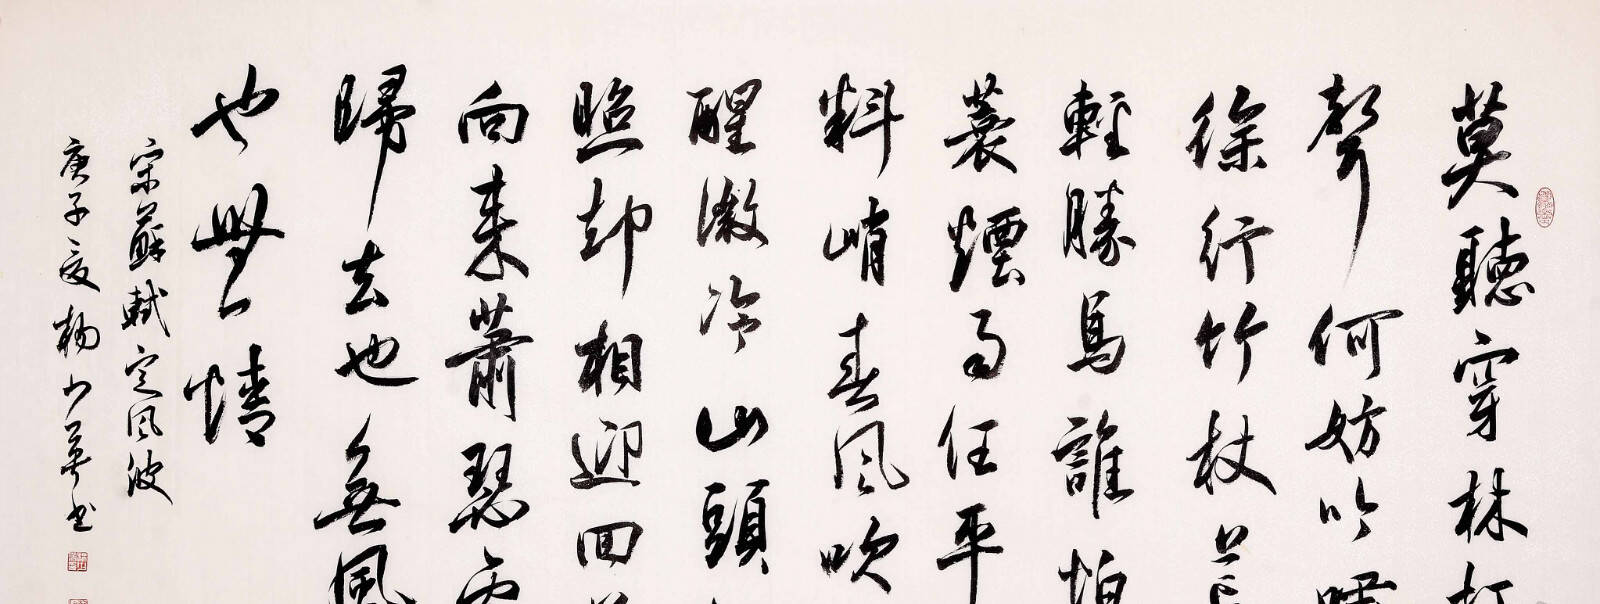 莫聽穿林打
聲何妨吟嘯
徐行竹杖芒
輕勝馬誰怕
蓑煙雨任平
料峭春風吹
醒微冷山頭
照却相迎回首
向來蕭瑟處
歸去也無風
也無情
宋蘇軾定風波
庚子夏楊少英书